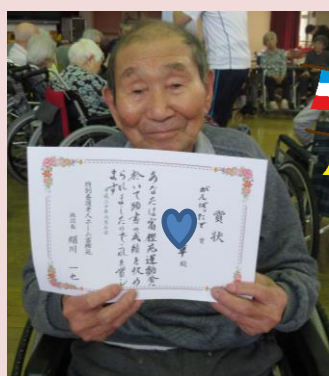 賞状
がんばったで賞
殿
あなたは富樫苑運動会
於いて頭書の成績を収め
られましたのでこれを賞し
ます
特別養護老人ホーム富樫苑
施設長 絹川 一也